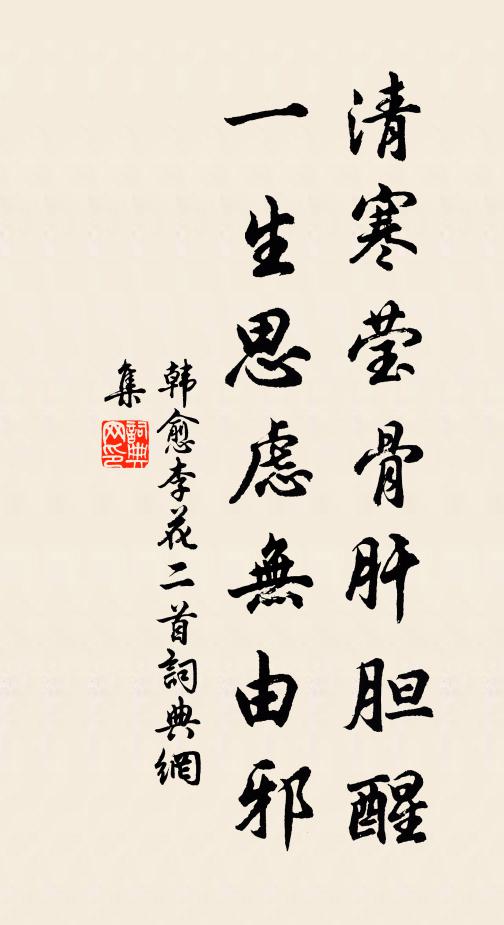 清寒莹骨肝胆醒
一生思慮無由邪
韩愈李花二首詞典網
集
詞典网印